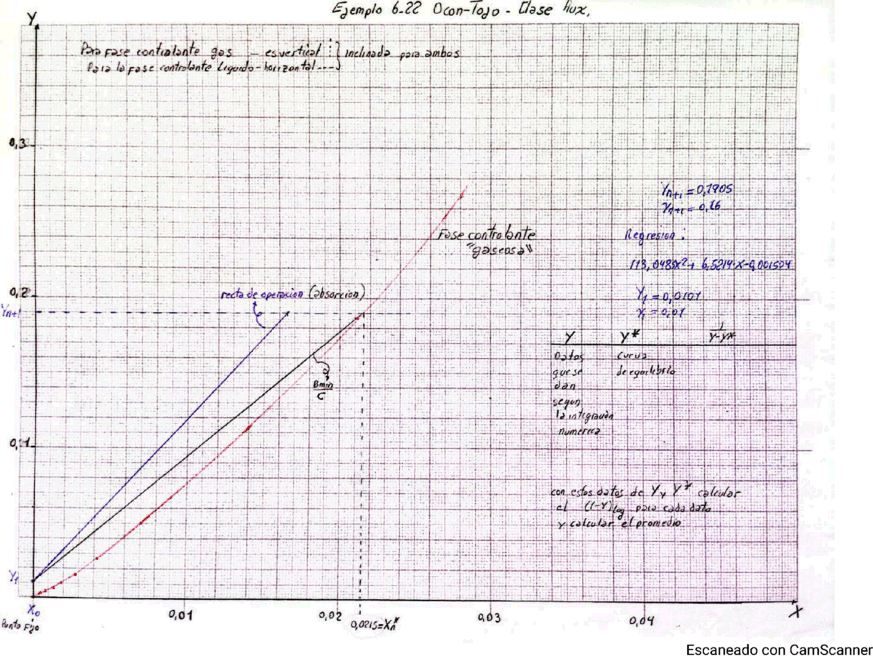 Ejemplo 6-22 Ocon-Tojo - Clase Aux.
Y
Para fase controlante gas - es vertical
Para la fase controlante liquido - horizontal ---
inclinada para ambos
0,3
Yn+1 = 0,1905
yn+1 = 0,16
Fase controlante
"gaseosa"
Regresion:
113,0488x²+ 6,5214·x-0,001504
0,2
recta de operacion (absorcion)
Y1 = 0,0101
y1 = 0,01
Yn+1
Y
Y*
1
Y-Y*
Datos
que se
dan
segun
la integración
numerica
curva
de equilibrio
Bmin
C
0,1
con estos datos de Y y Y* calcular
el (1-Y)log para cada dato
y calcular el promedio
Y1
X0
Punto Fijo
0,01
0,02
0,0215=Xn*
0,03
0,04
X
Escaneado con CamScanner